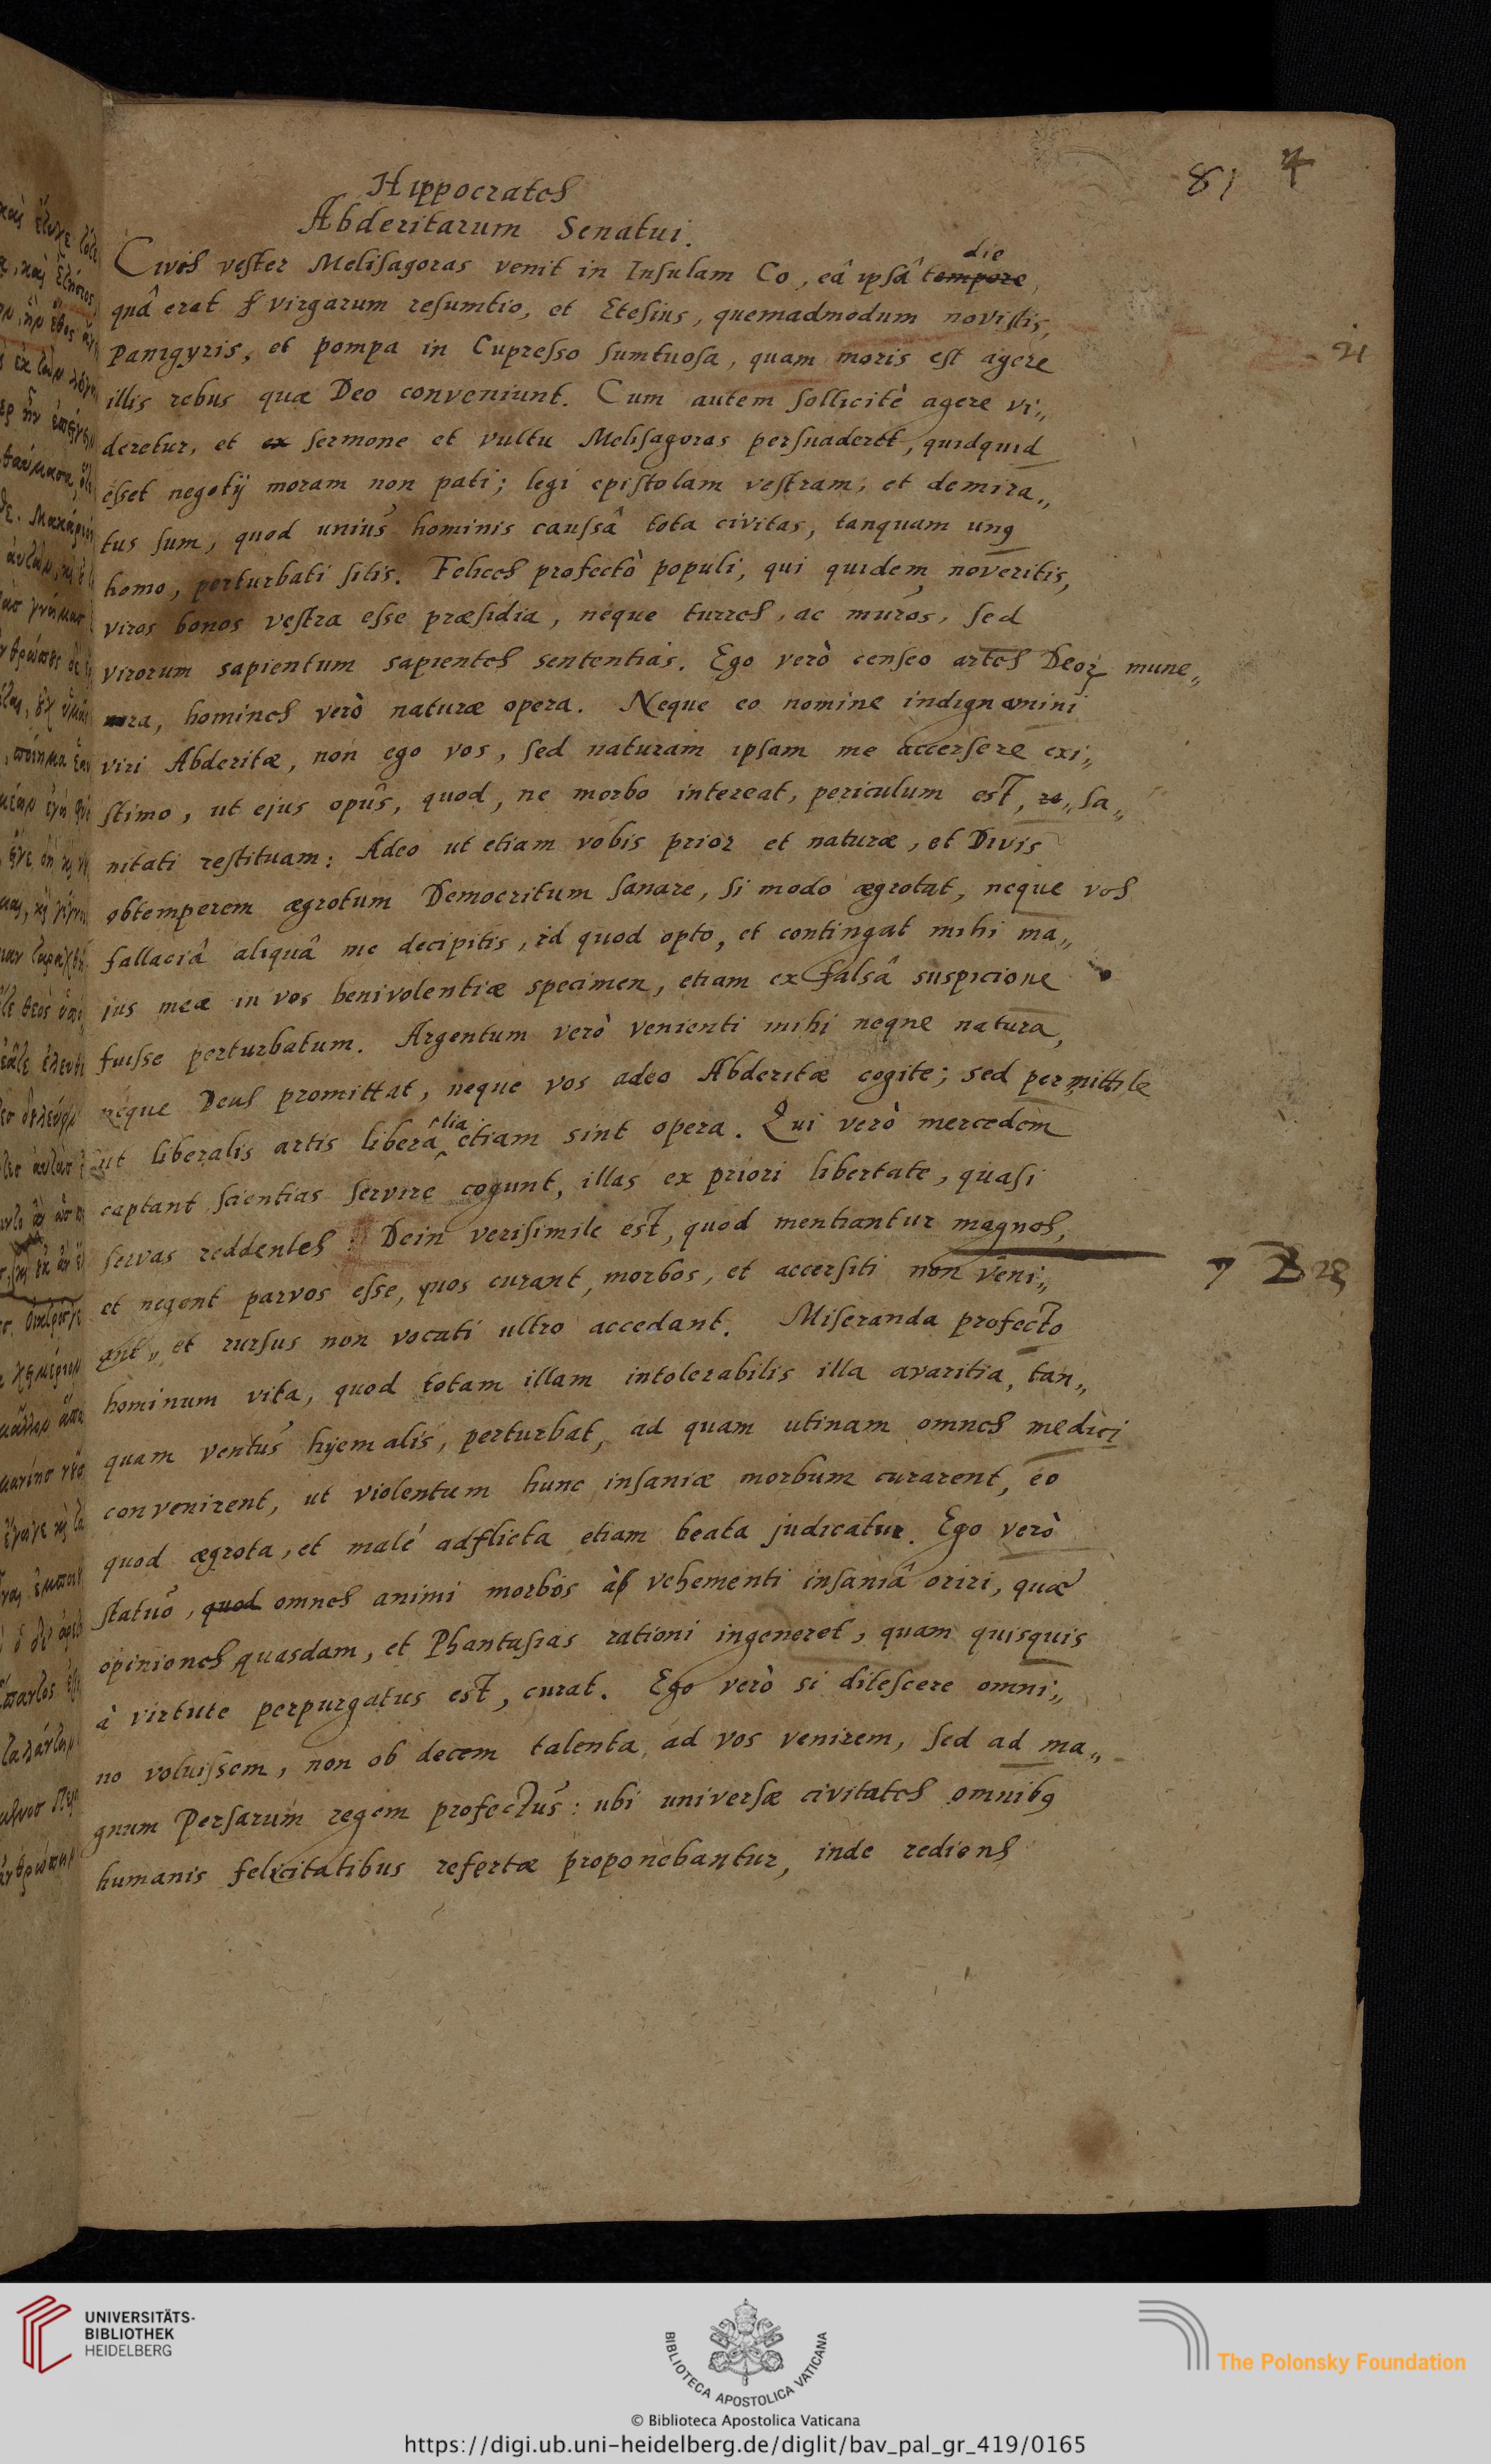 81 4
Hippocrates
Abderitarum Senatui.
die
Civis vester Melisagoras venit in Insulam Co, eâ ipsâ tempore,
quâ erat virgarum resumtio, et Etesius, quemadmodum novistis,
Panigyris, et pompa in Cupresso sumtuosa, quam moris est agere
21
illis rebus quæ Deo conveniunt. Cum autem sollicitè agere vi„
deretur, et ex sermone et vultu Melisagoras persuaderet, quidquid
esset negotij moram non pati; legi epistolam vestram, et demira„
tus sum, quod unius hominis caussâ tota civitas, tanquam unꝰ
homo, perturbati sitis. Felices profectò populi, qui quidem noveritis,
viros bonos vestra esse præsidia, neque turres, ac muros, sed
virorum sapientum sapientes sententias. Ego verò censeo artes Deoꝝ mune„
ra, homines verò naturæ opera. Neque eo nomine indignamini
viri Abderitæ, non ego vos, sed naturam ipsam me accersere exi„
stimo, ut ejus opus, quod, ne morbo intereat, periculum est, re„ sa„
nitati restituam: Adeo ut etiam vobis prior et naturæ, et Divis
obtemperem ægrotum Democritum sanare, si modo ægrotat, neque vos
fallaciâ aliquâ me decipitis, id quod opto, et contingat mihi ma„
jus meæ in vos benivolentiæ specimen, etiam ex falsâ suspicione
fuisse perturbatum. Argentum verò venienti mihi neque natura,
neque Deus promittat, neque vos adeo Abderitæ cogite; sed permittite
ut liberalis artis libera etiam sint opera. Qui verò mercedem
captant scientias servire cogunt, illas ex priori libertate, quasi
servas reddentes: Dein verisimile est, quod mentiantur magnos,
et negent parvos esse, quos curant, morbos, et accersiti non veni„
ant„ et rursus non vocati ultro accedant. Miseranda profecto
hominum vita, quod totam illam intolerabilis illa avaritia, tan„
quam ventus hyemalis, perturbat, ad quam utinam omnes medici
convenirent, ut violentum hunc insaniæ morbum curarent, eo
quod ægrota, et malé adflicta etiam beata judicatur. Ego verò
statuo, quod omnes animi morbos ab vehementi insaniâ oriri, quæ
opiniones quasdam, et Phantasias rationi ingeneret, quam quisquis
à virtute perpurgatus est, curat. Ego verò si ditescere omni„
no voluissem, non ob decem talenta, ad vos venirem, sed ad ma„
gnum Persarum regem profectus: ubi universæ civitates omnibꝰ
humanis felicitatibus refertæ proponebantur, inde rediens
UNIVERSITÄTS-
BIBLIOTHEK
HEIDELBERG
BIBLIOTECA APOSTOLICA VATICANA
The Polonsky Foundation
© Biblioteca Apostolica Vaticana
https://digi.ub.uni-heidelberg.de/diglit/bav_pal_gr_419/0165